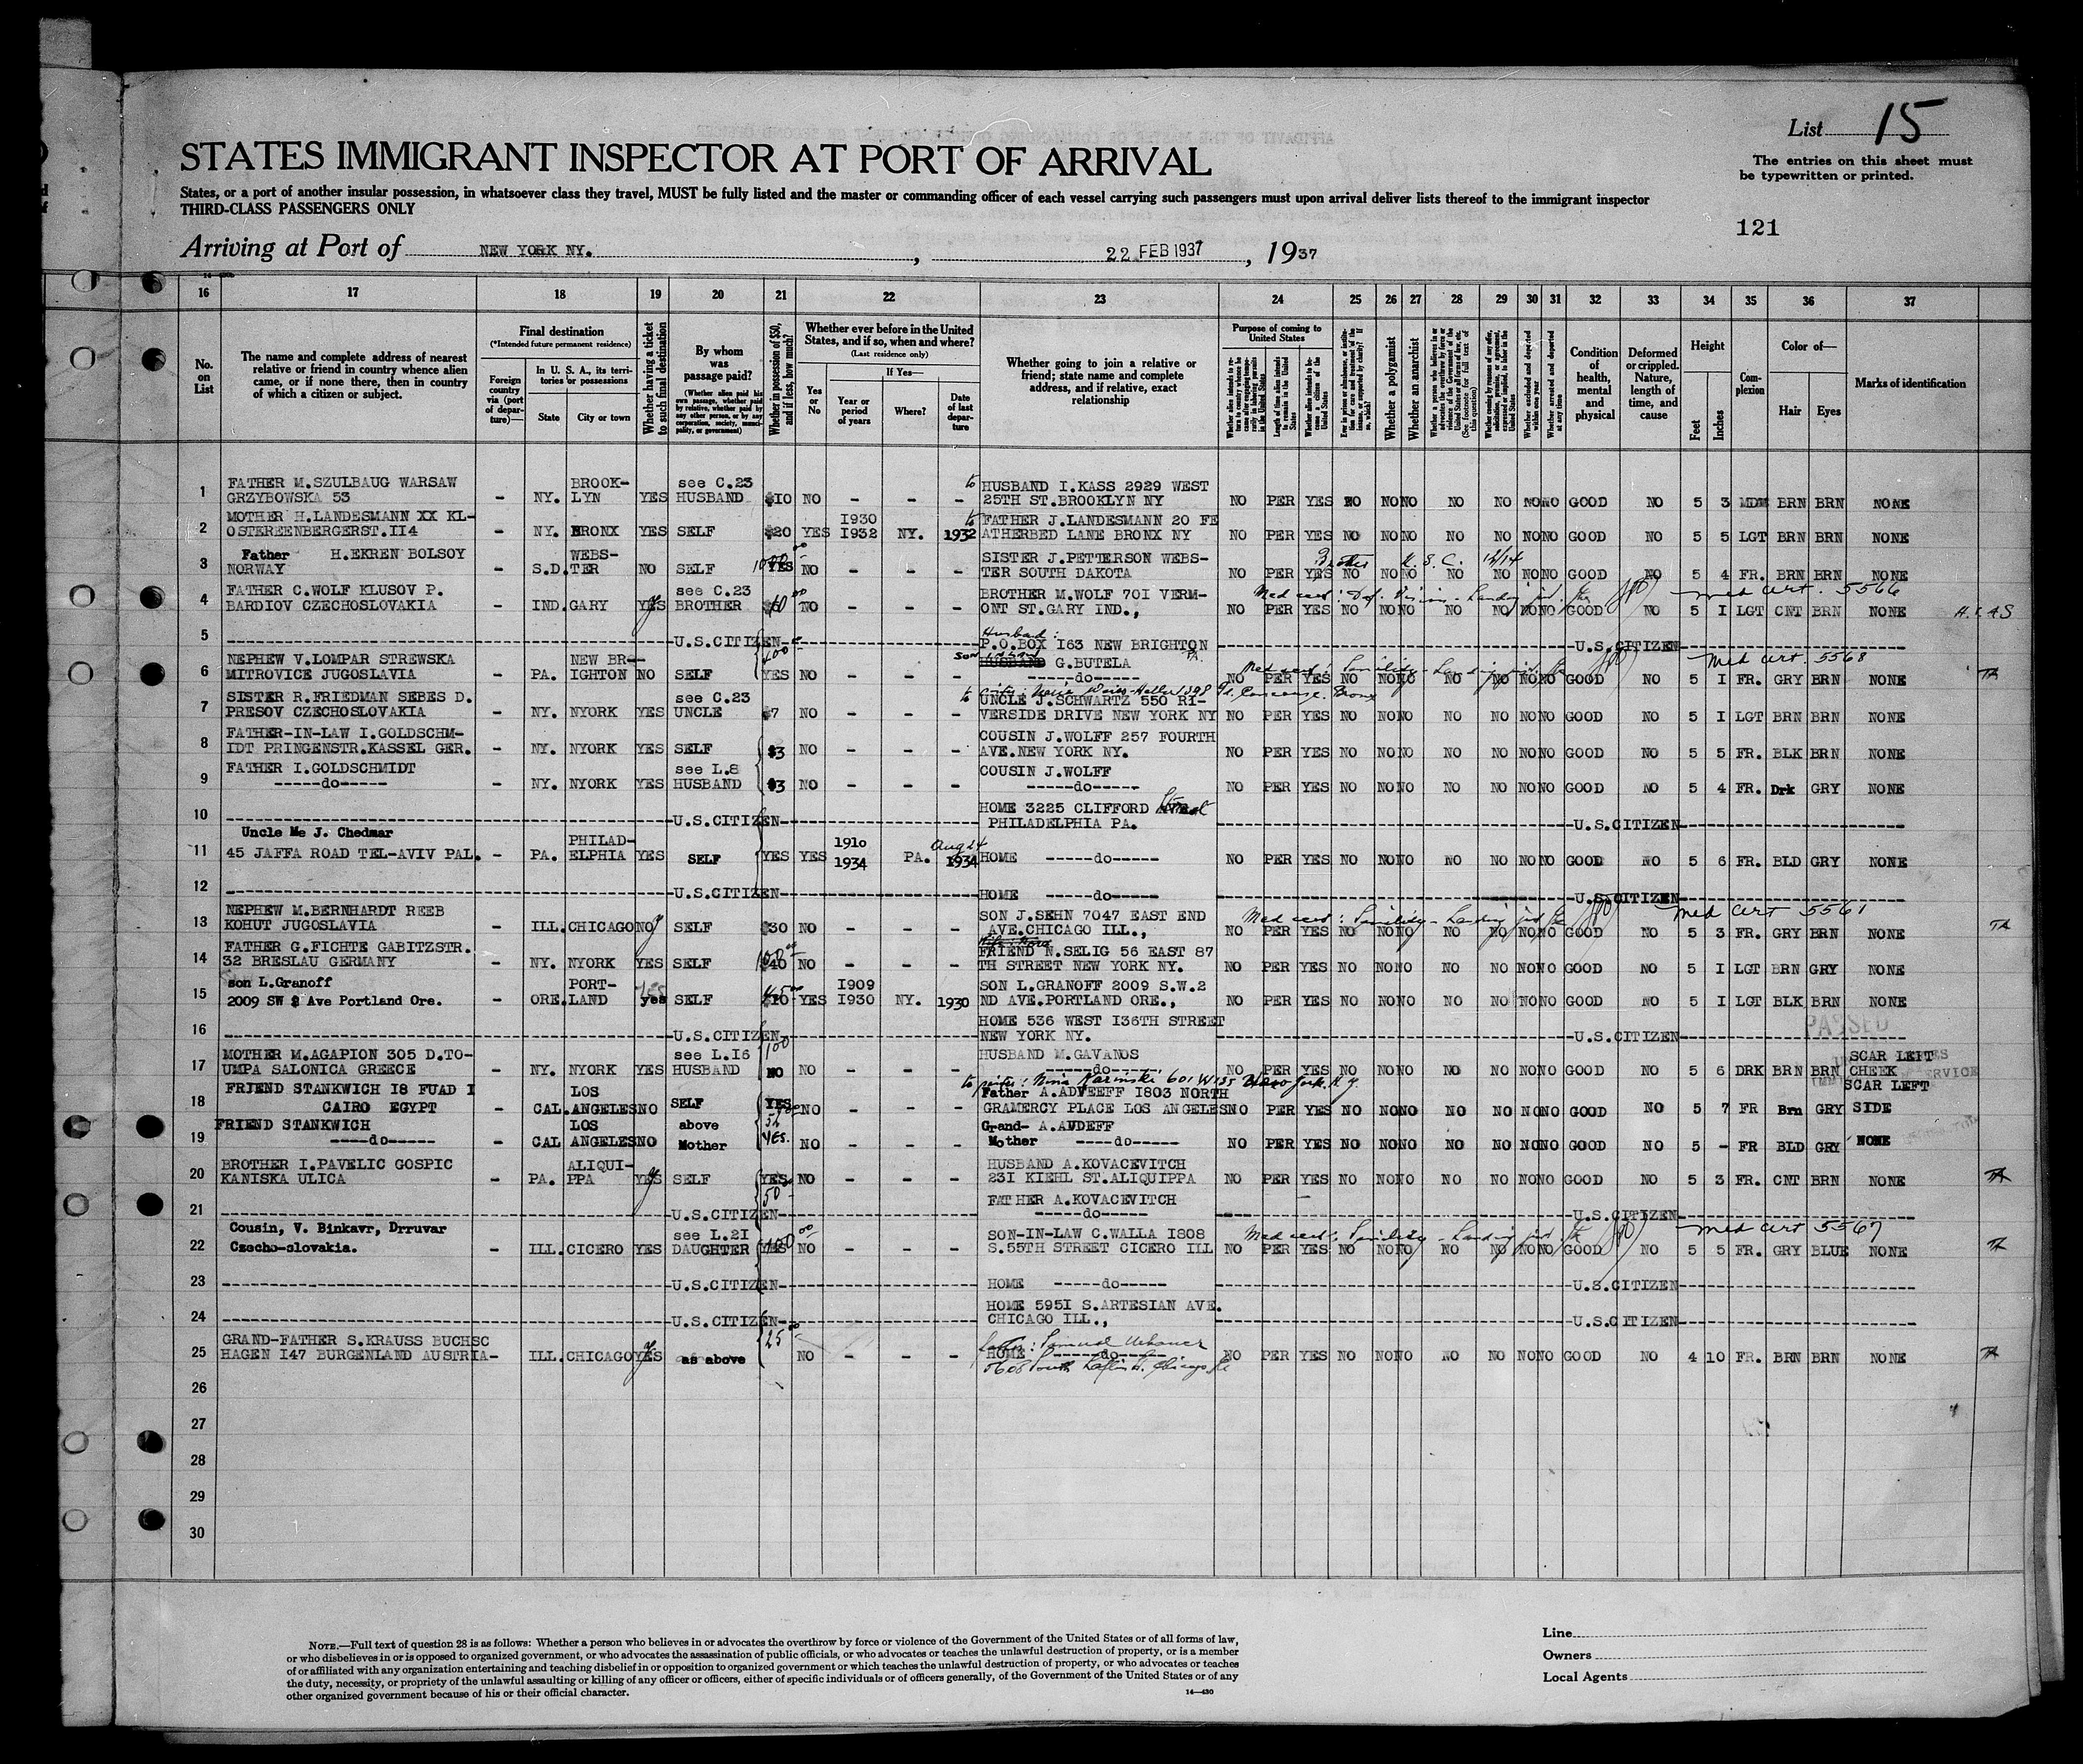 List 15
The entries on this sheet must
be typewritten or printed.
STATES IMMIGRANT INSPECTOR AT PORT OF ARRIVAL
States, or a port of another insular possession, in whatsoever class they travel, MUST be fully listed and the master or commanding officer of each vessel carrying such passengers must upon arrival deliver lists thereof to the immigrant inspector
THIRD-CLASS PASSENGERS ONLY
121
Arriving at Port of NEW YORK NY. , 22 FEB 1937 , 1937
16 17 18 19 20 21 22 23 24 25 26 27 28 29 30 31 32 33 34 35 36 37
No. on List
The name and complete address of nearest relative or friend in country whence alien came, or if none there, then in country of which a citizen or subject.
Final destination
(*Intended future permanent residence)
Foreign country via (port of departure)—
In U. S. A., its territories or possessions
State
City or town
Whether having a ticket to such final destination
By whom was passage paid?
(Whether alien paid his own passage, whether paid by relative, whether paid by any other person, or by any corporation, society, municipality, or government)
Whether in possession of $50, and if less, how much?
Whether ever before in the United States, and if so, when and where?
(Last residence only)
Yes or No
If Yes—
Year or period of years
Where?
Date of last departure
Whether going to join a relative or friend; state name and complete address, and if relative, exact relationship
Purpose of coming to United States
Length of time alien intends to remain in the United States
Whether alien intends to become a citizen of the United States
Whether a polygamist
Whether an anarchist
Condition of health, mental and physical
Deformed or crippled. Nature, length of time, and cause
Height
Feet
Inches
Complexion
Color of—
Hair
Eyes
Marks of identification
1 FATHER M.SZULBAUG WARSAW BROOK- see C.23 to HUSBAND I.KASS 2929 WEST
GRZYBOWSKA 53 - NY. LYN YES HUSBAND $10 NO - - - 25TH ST.BROOKLYN NY NO PER YES NO NO NO NO NO NO NO GOOD NO 5 3 MDM BRN BRN NONE
2 MOTHER H.LANDESMANN XX KL- I930 to FATHER J.LANDESMANN 20 FE
OSTEREENBERGERST.II4 - NY. BRONX YES SELF $20 YES I932 NY. 1932 ATHERBED LANE BRONX NY NO PER YES NO NO NO NO NO NO NO GOOD NO 5 5 LGT BRN BRN NONE
3 Father H.EKREN BOLSOY WEBS- SISTER J.PETTERSON WEBS-
NORWAY - S.D. TER NO SELF YES NO - - - TER SOUTH DAKOTA NO PER YES NO NO NO NO NO NO NO GOOD NO 5 4 FR. BRN BRN NONE
4 FATHER C.WOLF KLUSOV P. see C.23 BROTHER M.WOLF 70I VERM- Med cert. 5566
BARDIOV CZECHOSLOVAKIA - IND. GARY YES BROTHER NO - - - ONT ST.GARY IND., NO PER YES NO NO NO NO NO NO NO GOOD NO 5 I LGT CNT BRN NONE
5 U.S.CITIZEN Husband: P.O.BOX I63 NEW BRIGHTON PA. U.S.CITIZEN
6 NEPHEW V.LOMPAR STREWSKA NEW BR- 400 son HUSBAND G.BUTELA Med cert: Senility Med cert. 5568
MITROVICE JUGOSLAVIA - PA. IGHTON NO SELF YES NO - - - -----do----- NO PER YES NO NO NO NO NO NO NO GOOD NO 5 I FR. GRY BRN NONE
7 SISTER R.FRIEDMAN SEBES D. see C.23 to UNCLE J.SCHWARTZ 550 RI-
PRESOV CZECHOSLOVAKIA - NY. NYORK YES UNCLE $7 NO - - - VERSIDE DRIVE NEW YORK NY NO PER YES NO NO NO NO NO NO NO GOOD NO 5 I LGT BRN BRN NONE
8 FATHER-IN-LAW I.GOLDSCHM- COUSIN J.WOLFF 257 FOURTH
IDT PRINGENSTR.KASSEL GER. - NY. NYORK YES SELF $3 NO - - - AVE.NEW YORK NY. NO PER YES NO NO NO NO NO NO NO GOOD NO 5 5 FR. BLK BRN NONE
9 FATHER I.GOLDSCHMIDT see L.8 COUSIN J.WOLFF
-----do----- - NY. NYORK YES HUSBAND $3 NO - - - -----do----- NO PER YES NO NO NO NO NO NO NO GOOD NO 5 4 FR. Drk GRY NONE
10 U.S.CITIZEN HOME 3225 CLIFFORD Street
PHILADELPHIA PA. U.S.CITIZEN
11 Uncle Me J. Chedmar PHILAD- 1910 Aug 24
45 JAFFA ROAD TEL-AVIV PAL. - PA. ELPHIA YES SELF YES YES 1934 PA. 1934 HOME -----do----- NO PER YES NO NO NO NO NO NO NO GOOD NO 5 6 FR. BLD GRY NONE
12 U.S.CITIZEN HOME -----do----- U.S.CITIZEN
13 NEPHEW M.BERNHARDT REEB SON J.SEHN 7047 EAST END Med cert: Senility Med cert 5561
KOHUT JUGOSLAVIA - ILL. CHICAGO NO SELF $30 NO - - - AVE.CHICAGO ILL., NO PER YES NO NO NO NO NO NO NO GOOD NO 5 3 FR. GRY BRN NONE
14 FATHER G.FICHTE GABITZSTR. FRIEND N.SELIG 56 EAST 87
32 BRESLAU GERMANY - NY. NYORK YES SELF $40 NO - - - TH STREET NEW YORK NY. NO PER YES NO NO NO NO NO NO NO GOOD NO 5 I LGT BRN GRY NONE
15 son L.Granoff PORT- I909 SON L.GRANOFF 2009 S.W.2
2009 SW 2 Ave Portland Ore. - ORE. LAND yes SELF YES I930 NY. 1930 ND AVE.PORTLAND ORE., NO PER YES NO NO NO NO NO NO NO GOOD NO 5 I LGT BLK BRN NONE
16 U.S.CITIZEN HOME 536 WEST I36TH STREET
NEW YORK NY. U.S.CITIZEN PASSED
17 MOTHER M.AGAPION 305 D.TO- see L.I6 100 HUSBAND M.GAVANOS SCAR LEIT
UMPA SALONICA GREECE - NY. NYORK YES HUSBAND NO NO - - - -----do----- NO PER YES NO NO NO NO NO NO NO GOOD NO 5 6 DRK BRN BRN CHEEK
18 FRIEND STANKWICH I8 FUAD I LOS Father A.ADVEEFF I803 NORTH SCAR LEFT
CAIRO EGYPT - CAL. ANGELES NO SELF YES NO - - - GRAMERCY PLACE LOS ANGELES NO PER YES NO NO NO NO NO NO NO GOOD NO 5 7 FR Brn GRY SIDE
19 FRIEND STANKWICH LOS above Grand- A.AVDEFF
-----do----- - CAL ANGELES NO Mother YES. NO - - - Mother -----do----- NO PER YES NO NO NO NO NO NO NO GOOD NO 5 - FR BLD GRY NONE
20 BROTHER I.PAVELIC GOSPIC ALIQUI- HUSBAND A.KOVACEVITCH
KANISKA ULICA - PA. PPA YES SELF YES NO - - - 23I KIEHL ST.ALIQUIPPA NO PER YES NO NO NO NO NO NO NO GOOD NO 5 3 FR. CNT BRN NONE
21 U.S.CITIZEN 50 FATHER A.KOVACEVITCH
-----do----- U.S.CITIZEN
22 Cousin, V. Binkavr, Drruvar see L.2I SON-IN-LAW C.WALLA I808 Med cert: Senility Med cert 5567
Czecho-slovakia. - ILL. CICERO YES DAUGHTER YES NO - - - S.55TH STREET CICERO ILL NO PER YES NO NO NO NO NO NO NO GOOD NO 5 5 FR. GRY BLUE NONE
23 U.S.CITIZEN HOME -----do----- U.S.CITIZEN
24 U.S.CITIZEN HOME 595I S.ARTESIAN AVE.
CHICAGO ILL., U.S.CITIZEN
25 GRAND-FATHER S.KRAUSS BUCHSC 25
HAGEN I47 BURGENLAND AUSTRIA- ILL. CHICAGO YES as above NO HOME -----do----- NO PER YES NO NO NO NO NO NO NO GOOD NO 4 10 FR. BRN BRN NONE
26
27
28
29
30
NOTE.—Full text of question 28 is as follows: Whether a person who believes in or advocates the overthrow by force or violence of the Government of the United States or of all forms of law,
or who disbelieves in or is opposed to organized government, or who advocates the assassination of public officials, or who advocates or teaches the unlawful destruction of property, or is a member
of or affiliated with any organization entertaining and teaching disbelief in or opposition to organized government or which teaches the unlawful destruction of property, or who advocates or teaches
the duty, necessity, or propriety of the unlawful assaulting or killing of any officer or officers, either of specific individuals or of officers generally, of the Government of the United States or of any
other organized government because of his or their official character.
14—430
Line
Owners
Local Agents